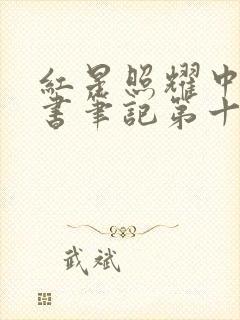 紅星照耀中
書筆記第十
武斌